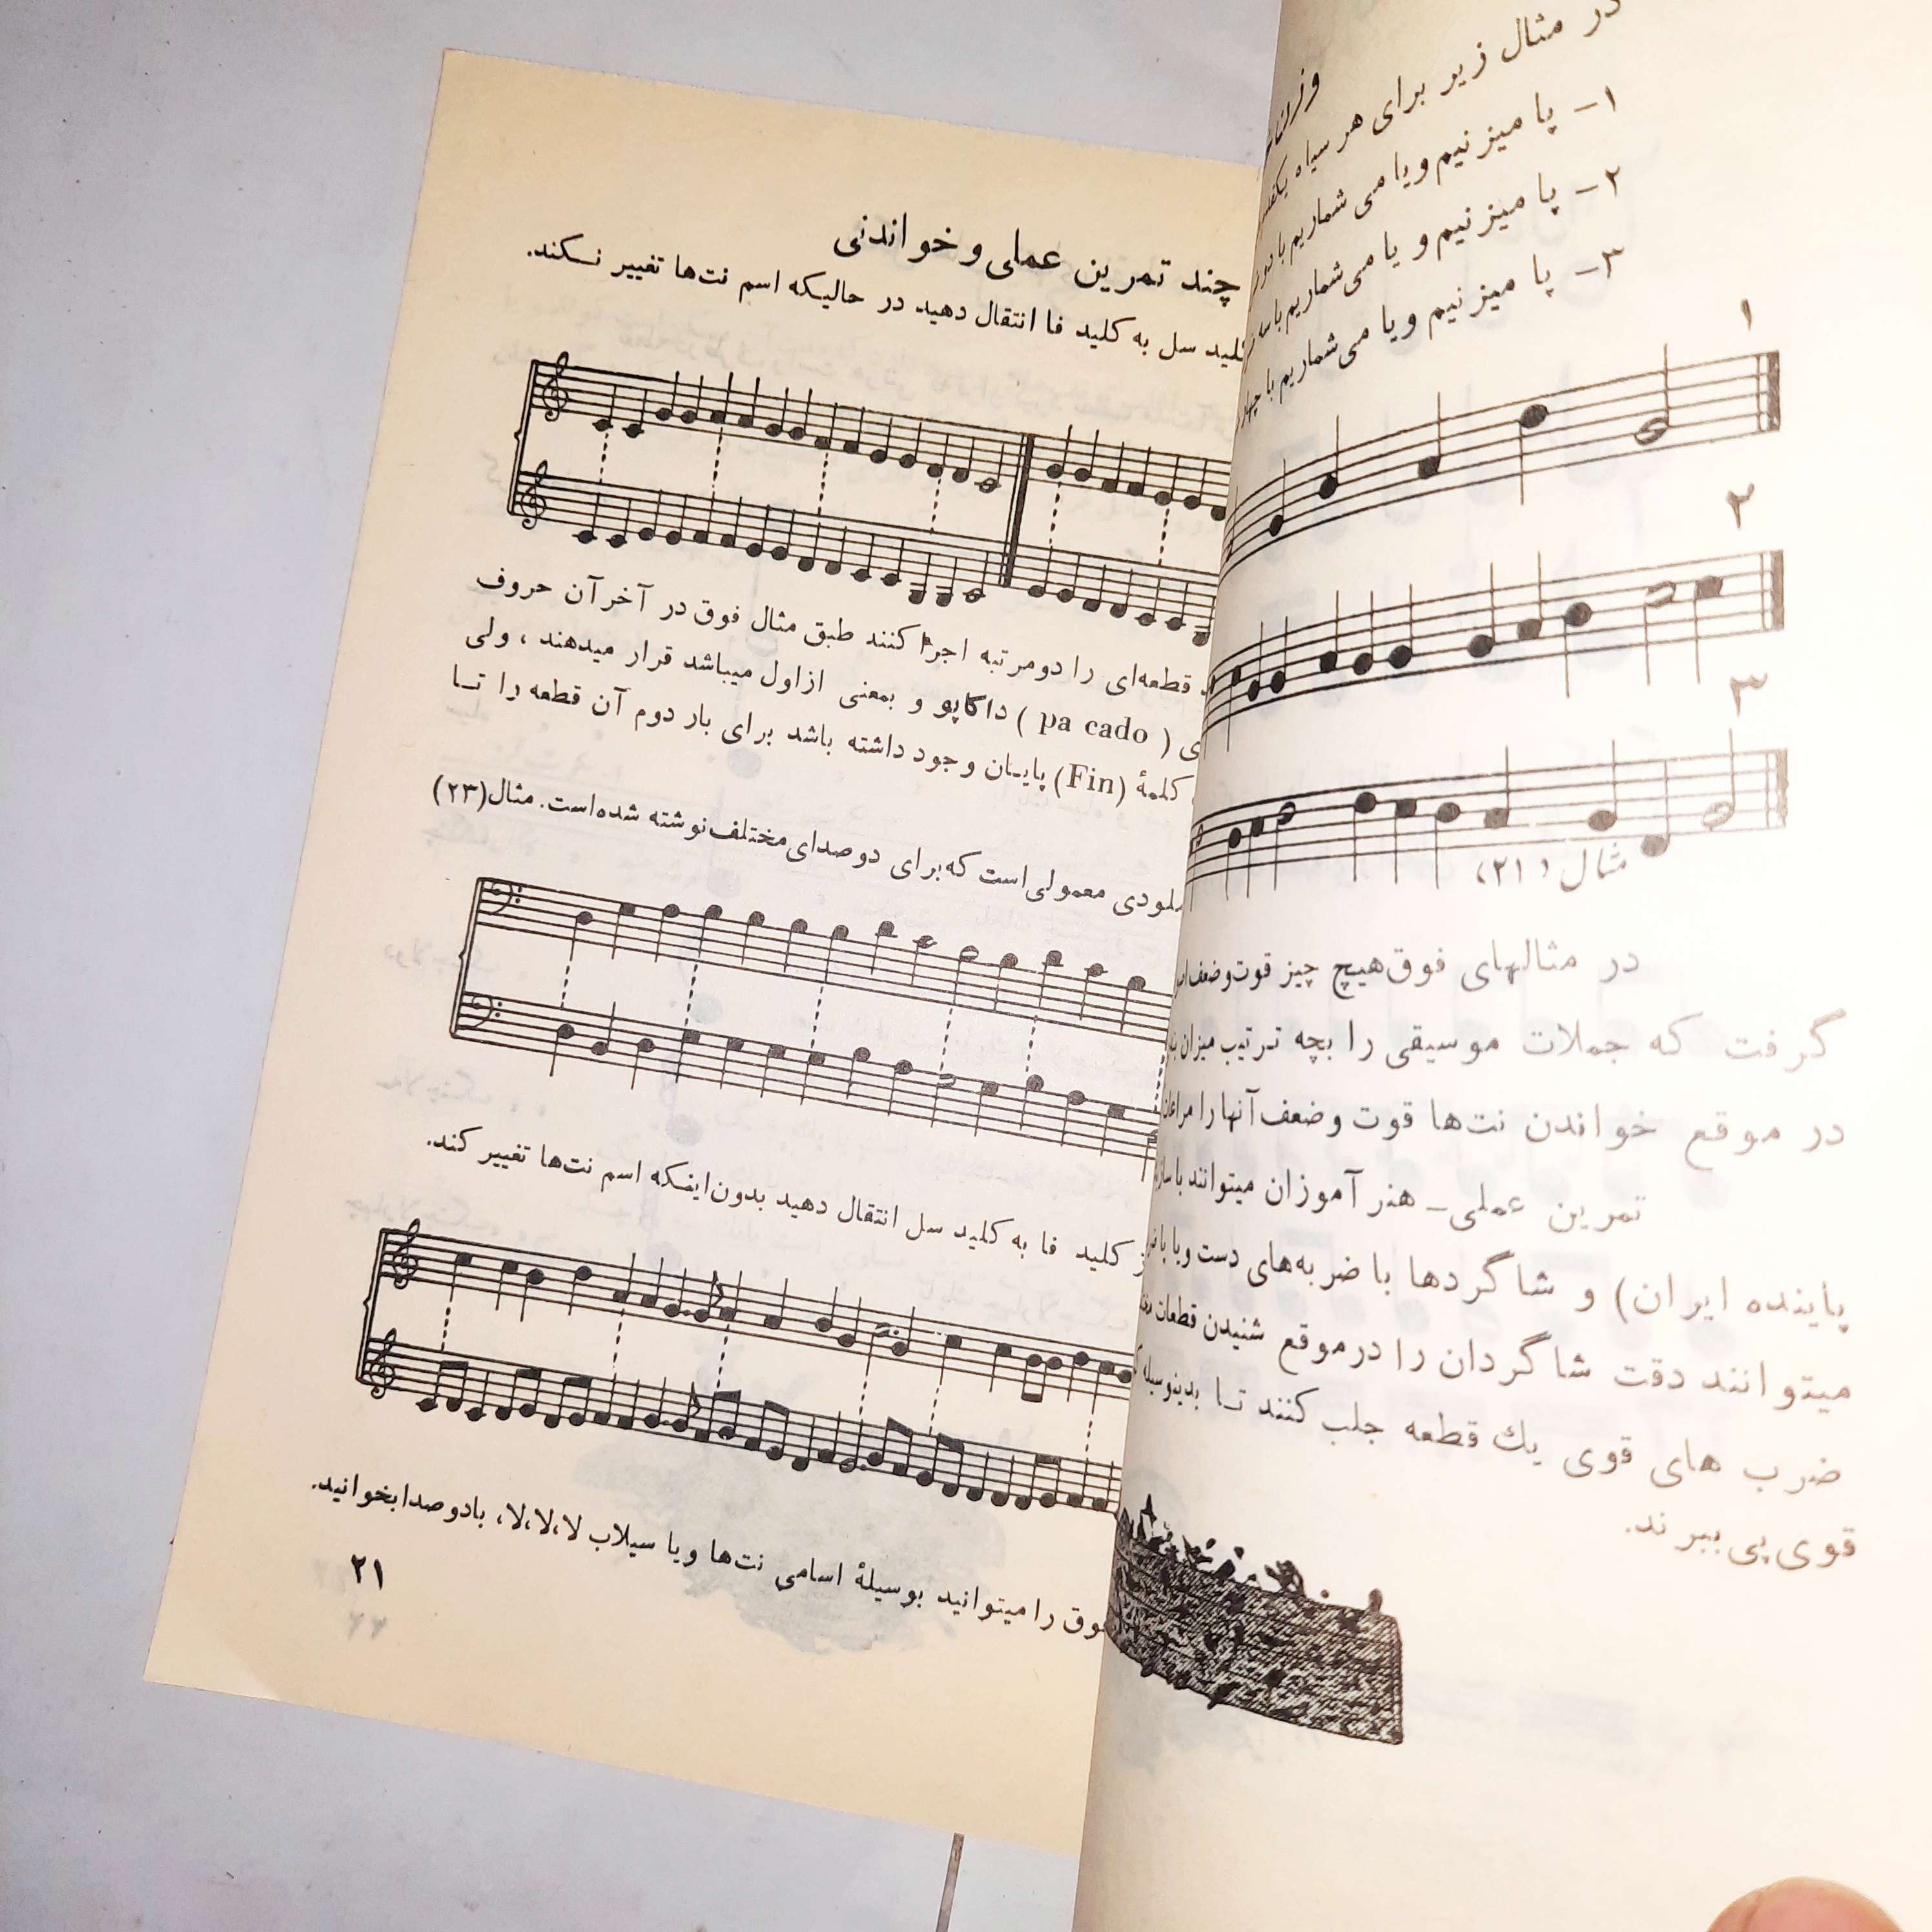 در مثال زیر برای هر سیاه
۱- پا میزنیم و یا می شماریم با دو
۲- پا میزنیم و یا می‌شماریم با سه
۳- پا میزنیم و یا می‌شماریم با چهار
۱
۲
۳
مثال (۲۱)
در مثالهای فوق هیچ چیز قوت و ضعف
گرفت که جملات موسیقی را بچه ترتیب میزان
در موقع خواندن نت‌ها قوت و ضعف آنها را
تمرین عملی- هنرآموزان میتوانند با
پاینده ایران) و شاگردها با ضربه‌های دست و یا با
میتوانند دقت شاگردان را در موقع شنیدن قطعات
ضرب های قوی یك قطعه جلب کنند تا بدینوسیله
قوی پی ببرند.
چند تمرین عملی و خواندنی
کلید سل به کلید فا انتقال دهید در حالیکه اسم نت‌ها تغییر نکند.
قطعه‌ای را دومرتبه اجرا کنند طبق مثال فوق در آخر آن حروف
ی ( pa cado ) داکاپو و بمعنی از اول میباشد قرار میدهند ، ولی
کلمهٔ (Fin) پایان وجود داشته باشد برای بار دوم آن قطعه را تا
ملودی معمولی است که برای دو صدای مختلف نوشته شده است. مثال(۲۳)
ز کلید فا به کلید سل انتقال دهید بدون اینکه اسم نت‌ها تغییر کند.
فوق را میتوانید بوسیلهٔ اسامی نت‌ها و یا سیلاب لا،لا،لا، با دو صدا بخوانید.
۲۱